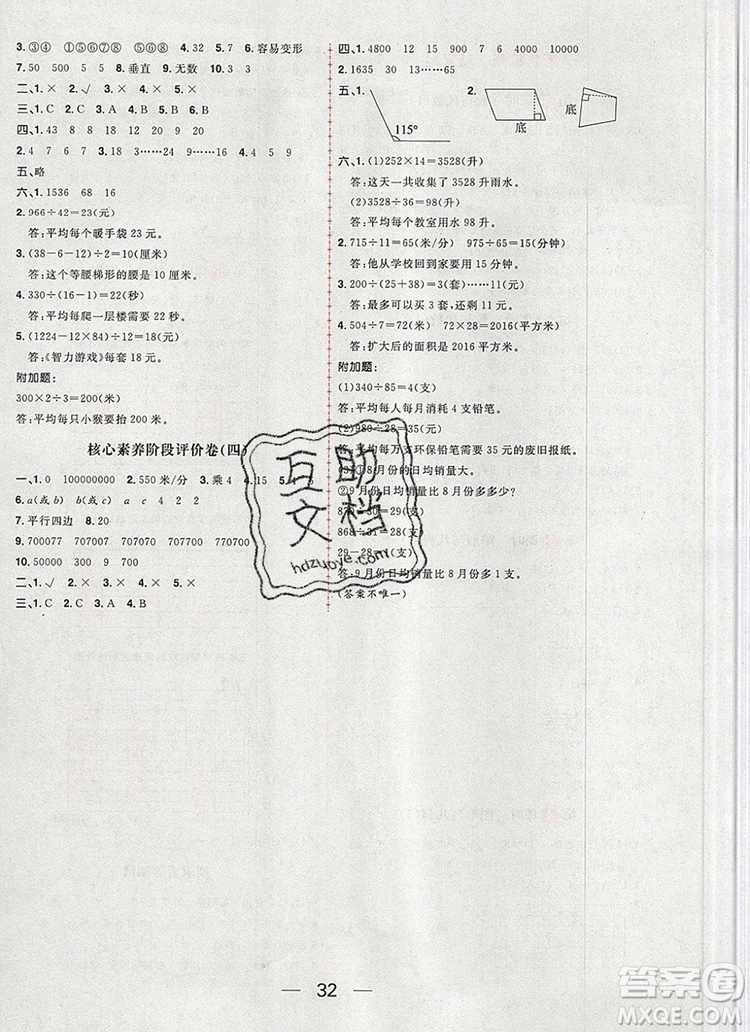 3.③④　①⑤⑥⑦⑧　⑤⑥⑧　4.32　5.7　6.容易变形
7.50　500　5　5　8.垂直　9.无数　10.3　3
二、1.×　2.√　3.×　4.×　5.×
三、1.C　2.C　3.A　4.B　5.A
四、1.43　8　18　12　20　9
2.4　7　6　7　3……9　4……16
五、略
六、1.1536　68　16
2.966÷42=23(元)
答:平均每个暖手袋23元。
3.(38-6-12)÷2=10(厘米)
答:这个等腰梯形的腰是10厘米。
4.330÷(16-1)=22(秒)
答:平均每爬一层楼需要22秒。
5.(1224-12×84)÷12=18(元)
答:《智力游戏》每套18元。
附加题:
300×2÷3=200(米)
答:平均每只小猴要抬200米。
核心素养阶段评价卷(四)
一、1.0　100000000　2.550米/分　3.乘4　4.15　5
6.a(或b)　b(或c)　a　c　4　2　2
7.平行四边　8.20
9.700077　707070　707700　770700
10.30000　50000　700　7
二、1.√　2.×　3.×　4.√　5.√
三、1.C　2.C　3.A　4.B　5.B
四、1.4800　12　15　900　4　10000
2.1635　30　13……65
五、1.
115°
2.
底
底
六、1.(1)252×14=3528(升)
答:这天一共收集了3528升雨水。
(2)3528÷36=98(升)
答:平均每个教室用水98升。
2.715÷11=65(米/分)　975÷65=15(分钟)
答:他从学校回到家要用15分钟。
3.200÷(25+38)=3(套)……11(元)
答:最多可以买3套,还剩11元。
4.504÷7=72(米)　72×28=2016(平方米)
答:扩大后的面积是2016平方米。
附加题:
(1)340÷85=4(支)
答:平均每人每月消耗4支铅笔。
(2)980÷28=35(元)
答:平均每万支环保铅笔需要35元的废旧报纸。
月份的日均销量大。
②9月份日均销量比8月份多多少?
870÷30=29(支)
868÷31=28(支)
29-28=1(支)
答:9月份日均销量比8月份多1支。
(答案不唯一)
互助
文档
hdzuoye.com
32
答案圈
MXQE.COM